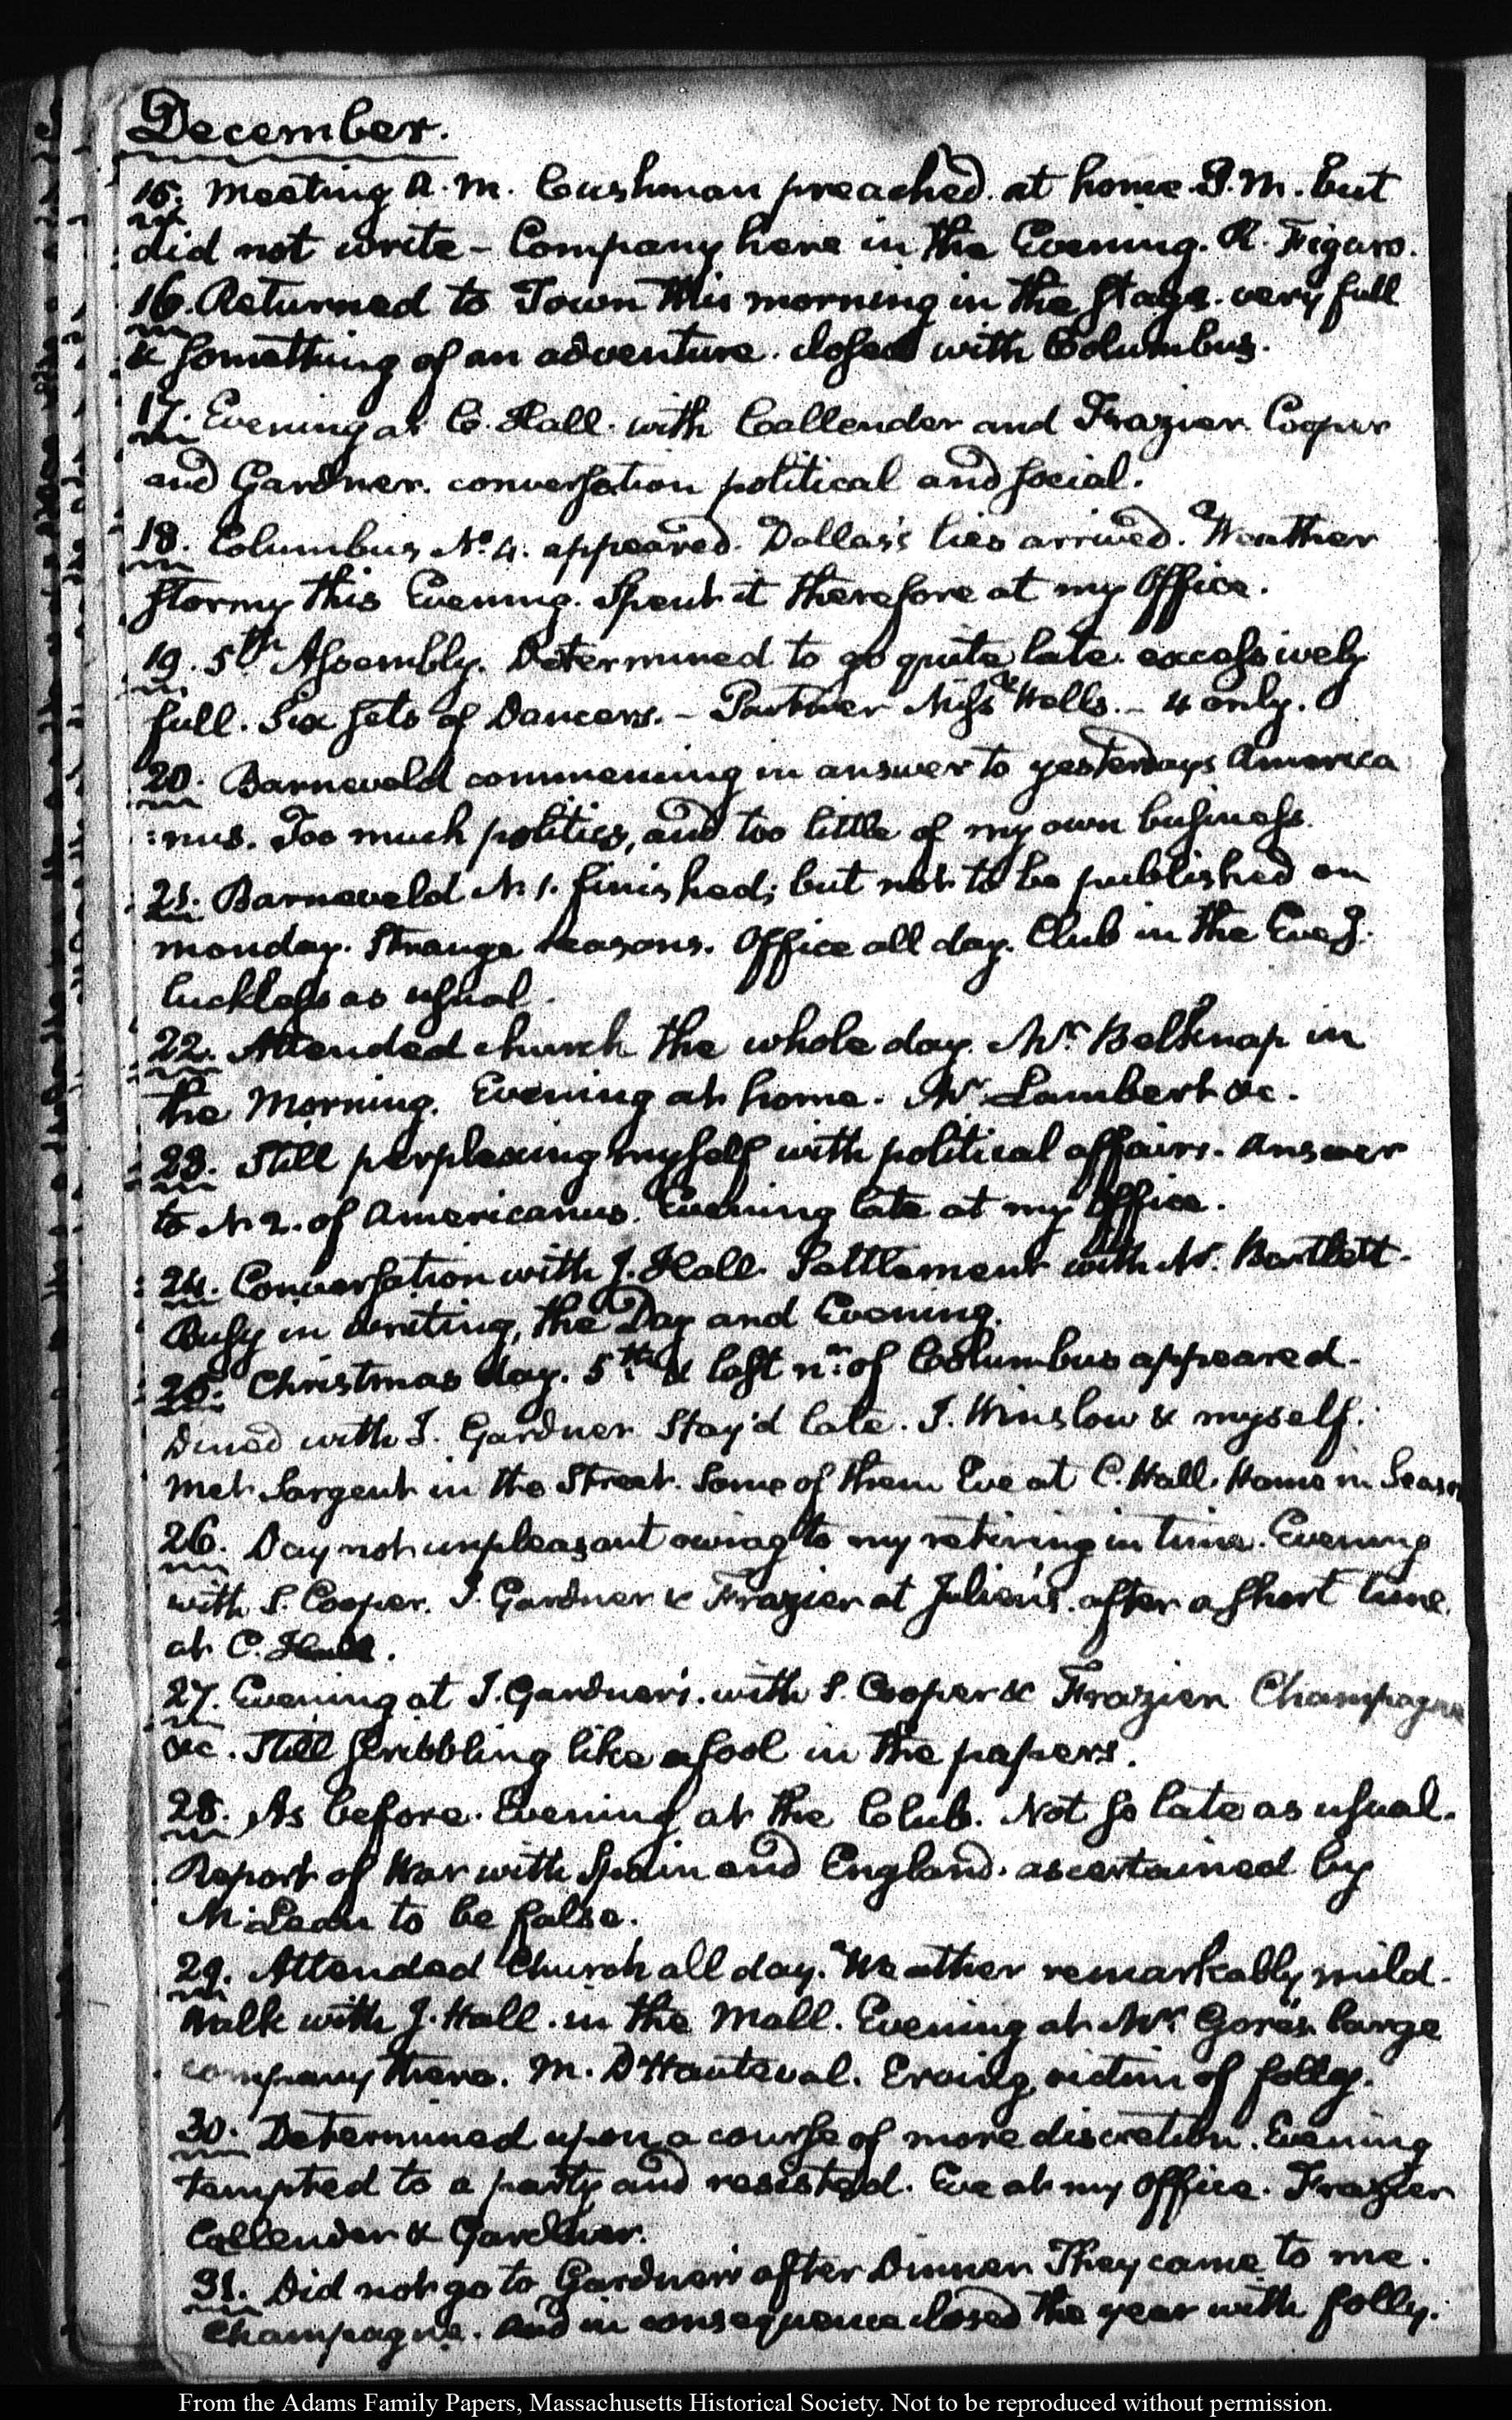 December.
15. Meeting A.M. Cushman preached. at home P.M. but
did not write – Company here in the Evening. R. Figaro.
16. Returned to Town this morning in the stage. very full
& something of an adventure. closed with Columbus.
17. Evening at C. Hall. with Callender and Frazier. Cooper
and Gardner. conversation political and social.
18. Columbus No. 4. appeared. Dallas's lies arrived. Weather
stormy this Evening. Spent it therefore at my Office.
19. 5th Assembly. Determined to go quite late. excessively
full. Six sets of Dancers. – Partner Miss Wells. – 4 only.
20. Barneveld commencing in answer to yesterdays America
:nus. Too much politics, and too little of my own business.
21. Barneveld N. 1. finished; but not to be published on
monday. Strange reasons. Office all day. Club in the Eveg.
luckless as usual.
22. Attended church the whole day. Mr. Belknap in
the Morning. Evening at home. Mr. Lambert &c.
23. Still perplexing myself with political affairs. Answer
to N 2. of Americanus. Evening late at my Office.
24. Conversation with J. Hall. Settlement with Mr. Bartlett.
Busy in writing, the Day and Evening.
25. Christmas day. 5th & last nr. of Columbus appeared.
Dined with J. Gardner Stay'd late. J. Winslow & myself.
Met Sargent in the Street. Some of them Eve at C. Hall. Home in Season
26. Day not unpleasant owing to my retiring in time. Evening
with S. Cooper. J. Gardner & Frazier at Julien's. after a short time
at C. Hall.
27. Evening at J. Gardner's. with S. Cooper & Frazier Champagne
&c. Still scribbling like a fool in the papers.
28. As before. Evening at the Club. Not so late as usual.
Report of War with Spain and England. ascertained by
M:Lean to be false.
29. Attended Church all day. Weather remarkably mild.
Walk with J. Hall. in the Mall. Evening at Mr. Gore's. large
company there. M. D'Hauteval. Erving, victim of folly.
30. Determined upon a course of more discretion. Evening
tempted to a party and resisted. Eve at my Office. Frazier
Callender & Gardner.
31. Did not go to Gardner's after Dinner They came to me.
Champagne. And in consequence closed the year with folly.
From the Adams Family Papers, Massachusetts Historical Society. Not to be reproduced without permission.